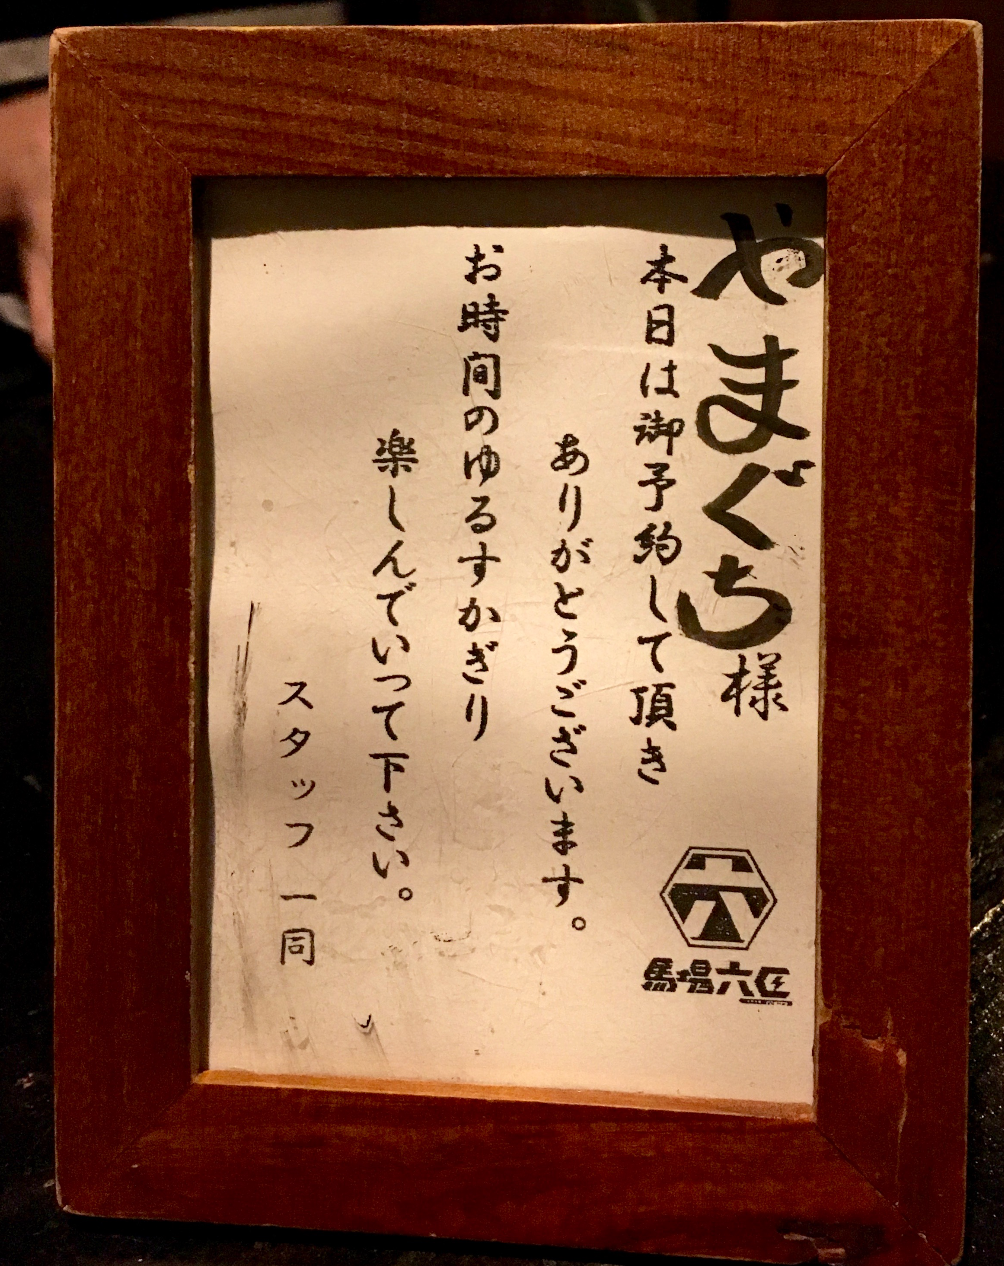 やまぐち様
本日は御予約して頂き
ありがとうございます。
お時間のゆるすかぎり
楽しんでいって下さい。
スタッフ一同
六
馬場六区